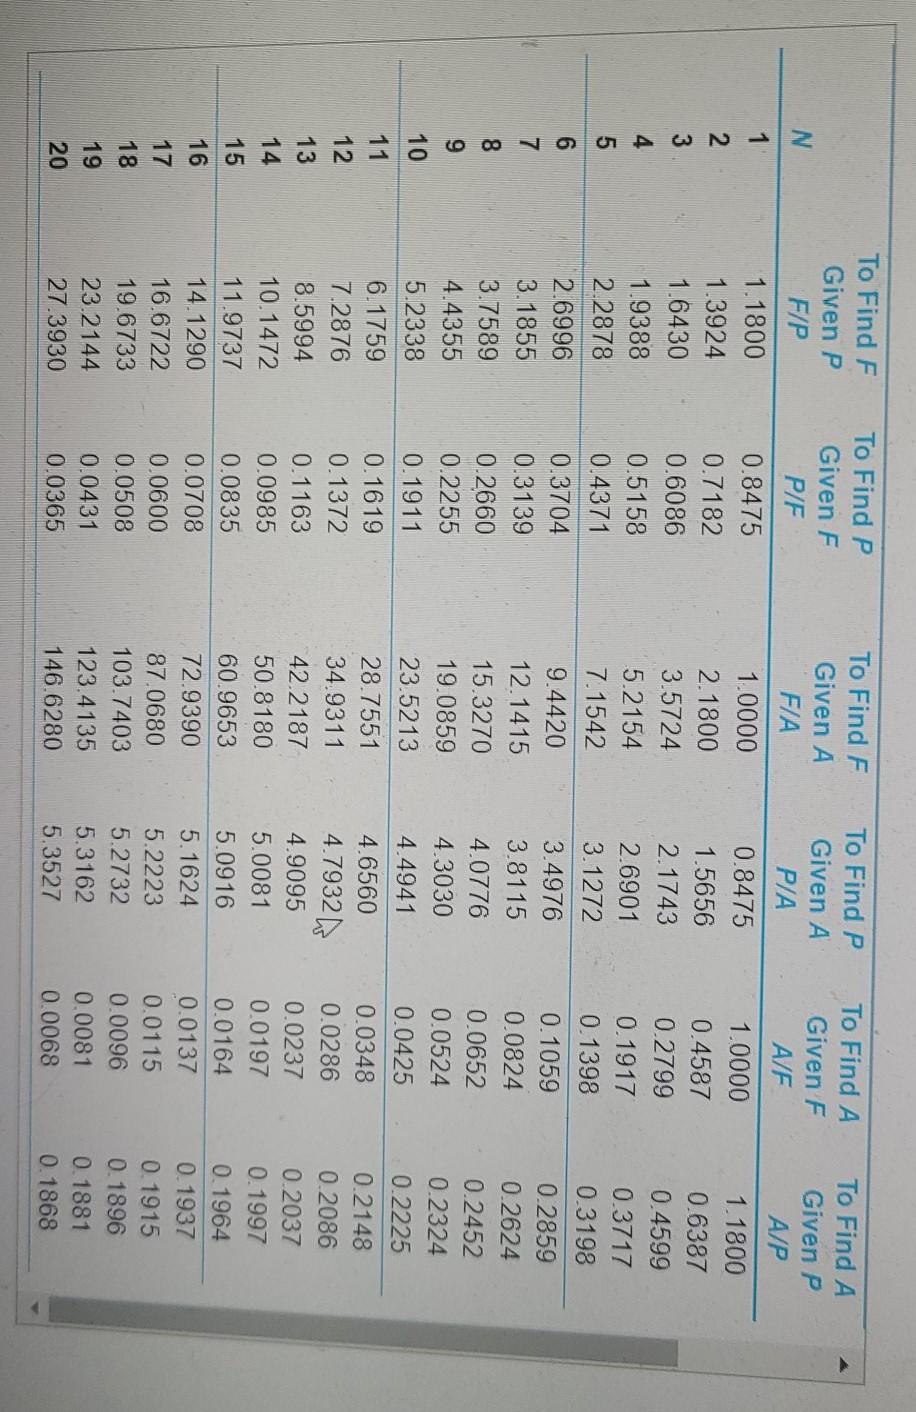 To Find F To Find P To Find F To Find P To Find A To Find A
Given P Given F Given A Given A Given F Given P
N F/P P/F F/A P/A A/F A/P
1 1.1800 0.8475 1.0000 0.8475 1.0000 1.1800
2 1.3924 0.7182 2.1800 1.5656 0.4587 0.6387
3 1.6430 0.6086 3.5724 2.1743 0.2799 0.4599
4 1.9388 0.5158 5.2154 2.6901 0.1917 0.3717
5 2.2878 0.4371 7.1542 3.1272 0.1398 0.3198
6 2.6996 0.3704 9.4420 3.4976 0.1059 0.2859
7 3.1855 0.3139 12.1415 3.8115 0.0824 0.2624
8 3.7589 0.2660 15.3270 4.0776 0.0652 0.2452
9 4.4355 0.2255 19.0859 4.3030 0.0524 0.2324
10 5.2338 0.1911 23.5213 4.4941 0.0425 0.2225
11 6.1759 0.1619 28.7551 4.6560 0.0348 0.2148
12 7.2876 0.1372 34.9311 4.7932 0.0286 0.2086
13 8.5994 0.1163 42.2187 4.9095 0.0237 0.2037
14 10.1472 0.0985 50.8180 5.0081 0.0197 0.1997
15 11.9737 0.0835 60.9653 5.0916 0.0164 0.1964
16 14.1290 0.0708 72.9390 5.1624 0.0137 0.1937
17 16.6722 0.0600 87.0680 5.2223 0.0115 0.1915
18 19.6733 0.0508 103.7403 5.2732 0.0096 0.1896
19 23.2144 0.0431 123.4135 5.3162 0.0081 0.1881
20 27.3930 0.0365 146.6280 5.3527 0.0068 0.1868